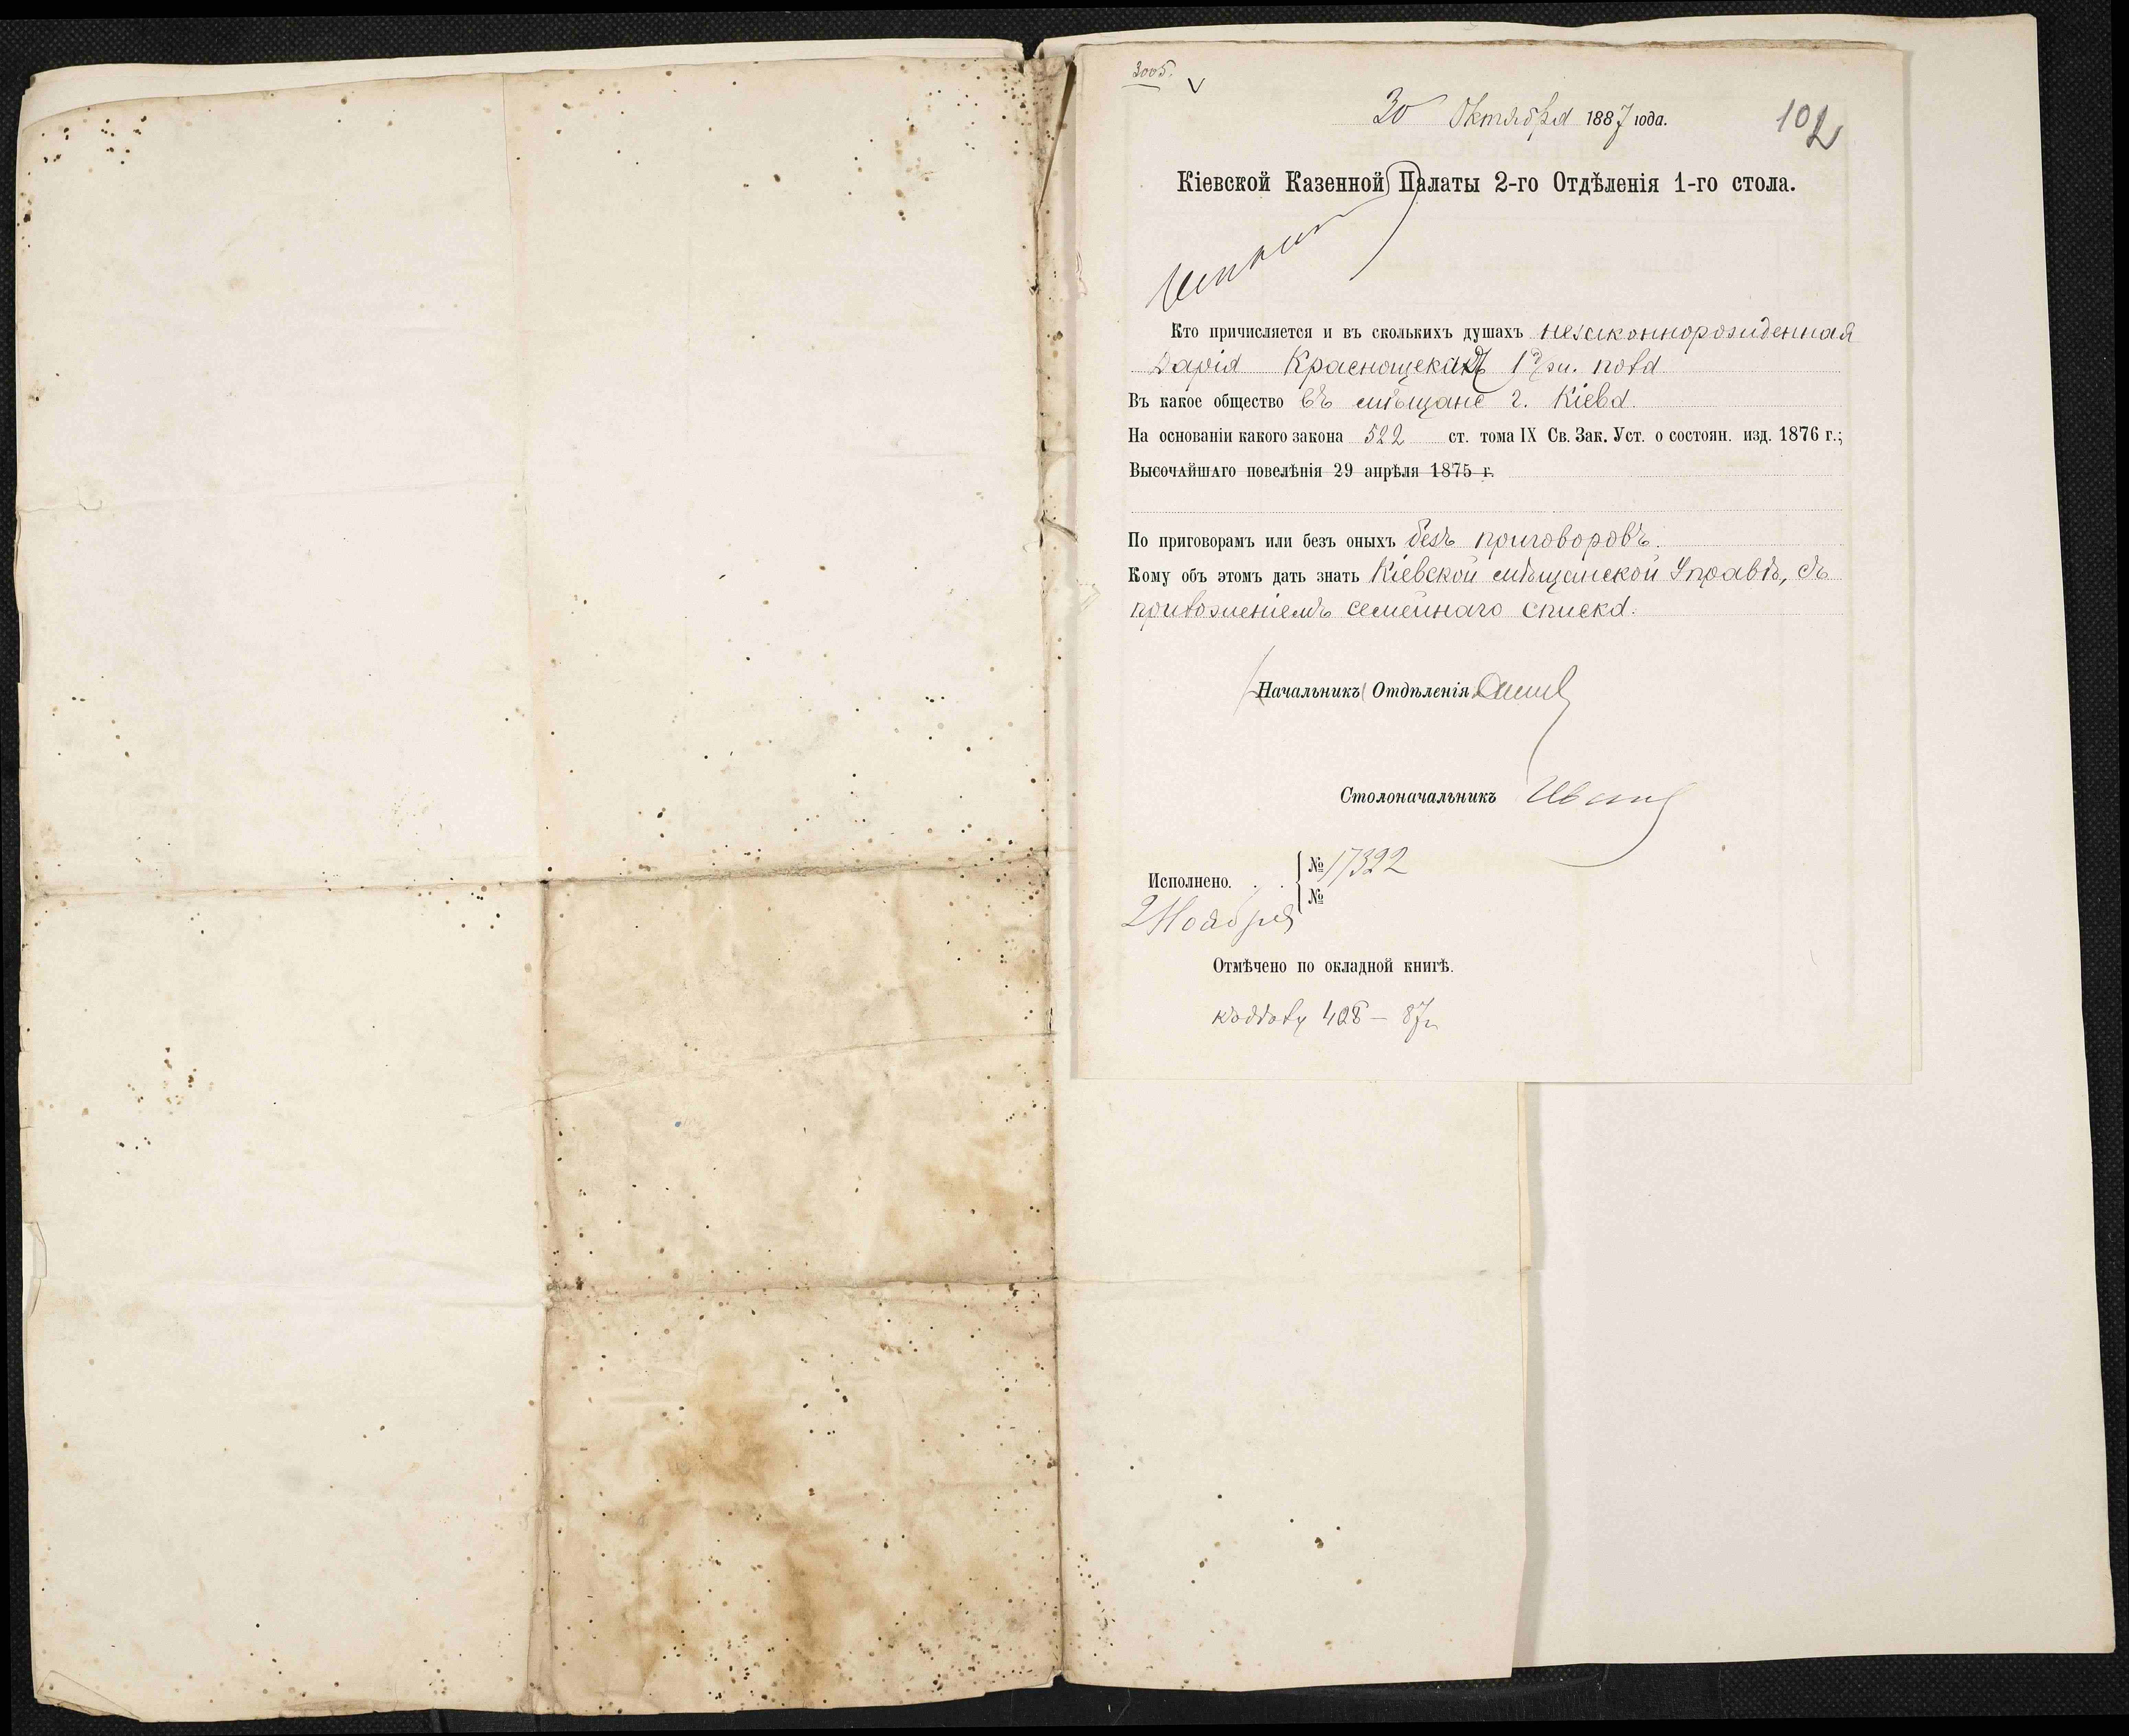 3005.
30 Октября 1887 года.
102
Кіевской Казенной Палаты 2-го Отдѣленія 1-го стола.
Кто причисляется и въ сколькихъ душахъ незаконнорожденная
Дарія 1 ж. пола
Въ какое общество въ мѣщане г. Кіева.
На основаніи какого закона 522 ст. тома IX Св. Зак. Уст. о состоян. изд. 1876 г.;
Высочайшаго повелѣнія 29 апрѣля 1875 г.
По приговорамъ или безъ оныхъ безъ приговоровъ.
Кому объ этомъ дать знать Кіевской мѣщанской Управѣ, съ
приложеніемъ семейнаго списка.
Начальникъ Отдѣленія
Столоначальникъ
Исполнено. . . № 17322
№
2 Ноября
Отмѣчено по окладной книгѣ.
428 — 87 г.